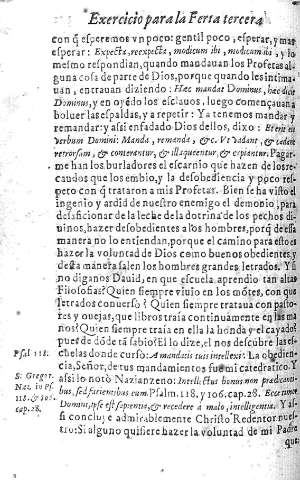 Exercicio para la Feria tercera
con q̃ esperemos vn poco: gentil poco, esperar, y mas
esperar: Expecta, reexpecta, modicum ibi, modicum ibi, y lo
mesmo respondian, quando mandauan los Profetas al-
guna cosa de parte de Dios, porque quando les intima-
uan, entrauan diziendo: Hæc mandat Dominus, hæc dicit
Dominus, y en oyẽdo los esclauos, luego començauan a
boluer las espaldas, y a repetir: Ya tenemos mandar y
remandar: y assi enfadado Dios dellos, dixo: Et erit eis
verbum Domini: Manda, remanda, &c. Vt vadant, & cadant
retrorsum, & conterantur, & illaqueentur, & capiantur. Pagar-
me han los burladores el escarnio que hazen de los re-
caudos que los embio, y la desobediencia y poco res-
peto con q̃ trataron a mis Profetas. Bien se ha visto el
ingenio y ardid de nuestro enemigo el demonio, para
desaficionar de la leche de la dotrina de los pechos di-
uinos, hazer desobedientes a los hõbres, porq̃ desta
manera no lo entiendan, porque el camino para esto es
hazer la voluntad de Dios como buenos obedientes, y
desta manera salen los hombres grandes letrados. Y si
no diganos Dauid, en que escuela aprendio tan altas
Filosofias? Quien siempre viuio en los mõtes, con que
letrados conuerso? Quien siempre trata con pasto-
res y ouejas, que libros traia continuamente en las ma-
nos? Quien siempre traia en ella la honda y el cayado
pues de dõde tã sabio? El lo dize, el nos descubre las es-
Psal. 118. cuelas donde curso: A mandatis tuis intellexi: La obedien-
cia, Señor, de tus mandamientos fue mi catedratico. Y
S. Gregor. assi lo notò Nazianzeno: Intellectus bonus non prædicanti-
Naz. in Ps. bus, sed facientibus eum. Psalm. 118. y 106. cap. 28. Ecce timor
118. & 106. Domini, ipse est sapientia, & recedere a malo, intelligentia. Y as-
cap. 28. si concluye admirablemente Christo Redentor nues-
tro: Si alguno quisiere hazer la voluntad de mi Padre
que